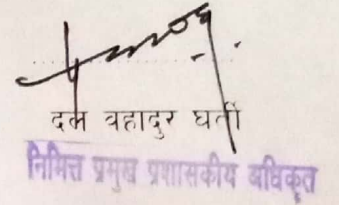 दल वहादुर घर्ती
निमित्त प्रमुख प्रशासकीय अधिकृत